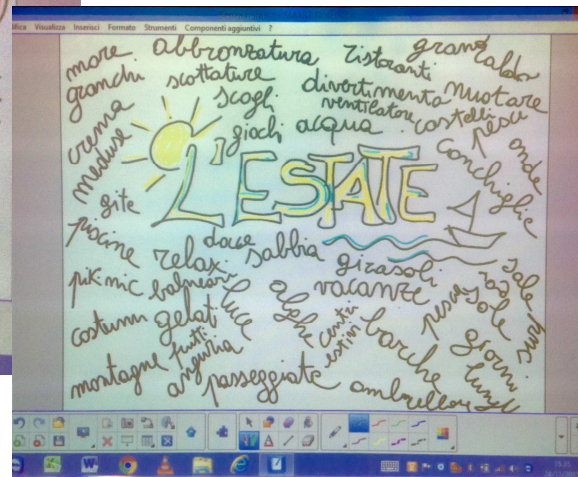 Visualizza Inserisci Formato Strumenti Componenti aggiuntivi ?
mare abbronzatura ristoranti gran caldo
granchi scottature divertimento nuotare
crema scogli ventilatore castelli pesca
meduse giochi acqua conchiglie onde
L'ESTATE
gite
piscine relax docce sabbia girasoli
pik-mic balneari luce alghe vacanze pesca sole
costumi gelati centri estivi barche giorni lunghi
montagne frutti anguria passeggiate ombrellone
15.25